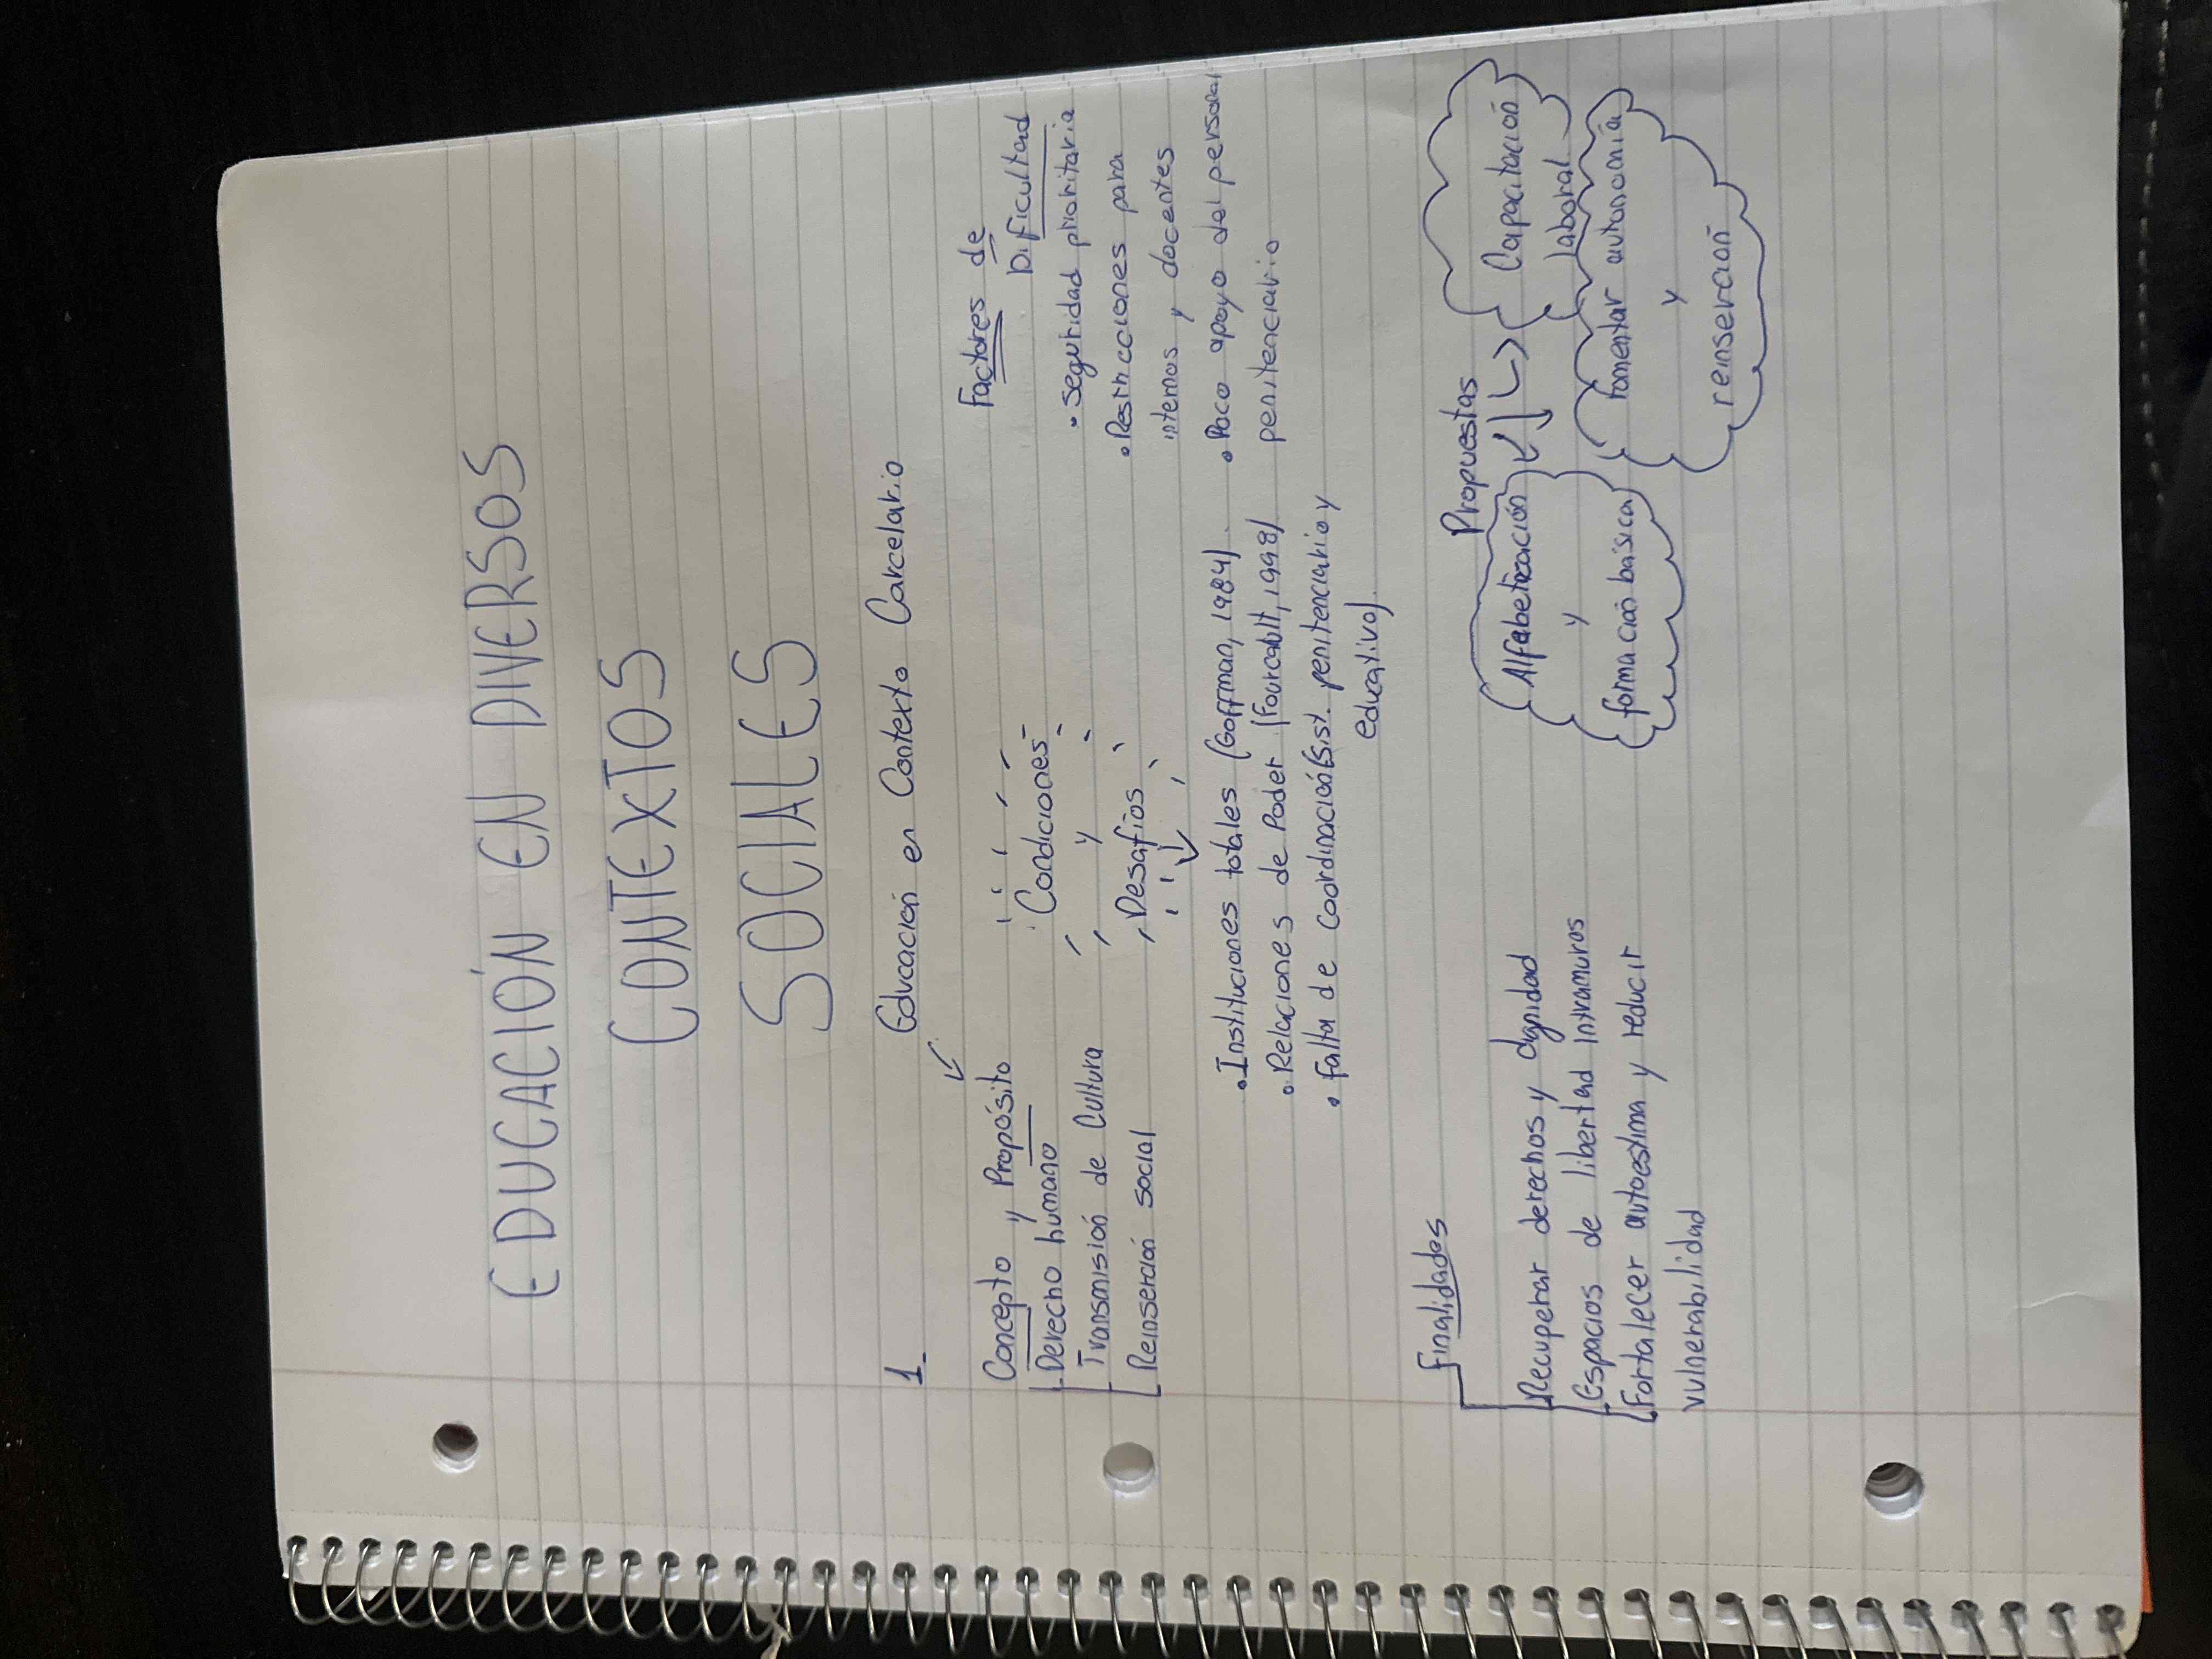 EDUCACIÓN EN DIVERSOS
CONTEXTOS
SOCIALES
1 Educación en Contexto Carcelario
Concepto y Propósito
Derecho humano
Transmisión de Cultura
Reinserción social
Condiciones
y
Desafíos
Factores de
Dificultad
• Seguridad prioritaria
• Restricciones para
internos y docentes
• Poco apoyo del personal
penitenciario
• Instituciones totales (Goffman, 1984)
• Relaciones de Poder (Fourcault, 1998)
• Falta de Coordinación (Sist. penitenciario y
educativo)
Finalidades
Recuperar derechos y dignidad
Espacios de libertad intramuros
Fortalecer autoestima y reducir
vulnerabilidad
Propuestas
Alfabetización
y
formación básica
Capacitación
laboral
Fomentar autonomía
y
reinserción